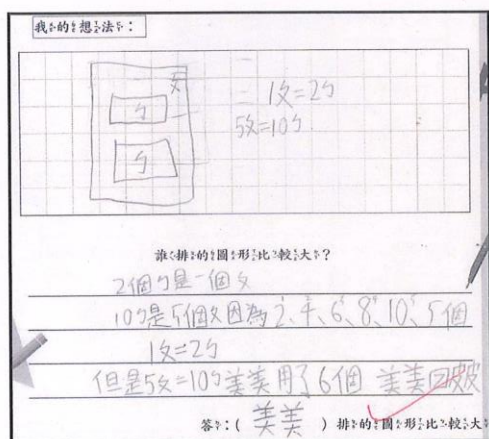 我的想法：
ㄆ
ㄅ
ㄅ
1ㄆ=2ㄅ
5ㄆ=10ㄅ
誰排的圖形比較大？
2個ㄅ是一個ㄆ
10ㄅ是5個ㄆ因為2、4、6、8、10、5個
1ㄆ=2ㄅ
但是5ㄆ=10ㄅ美美用了6個 美美
答：（ 美美 ）排的圖形比較大